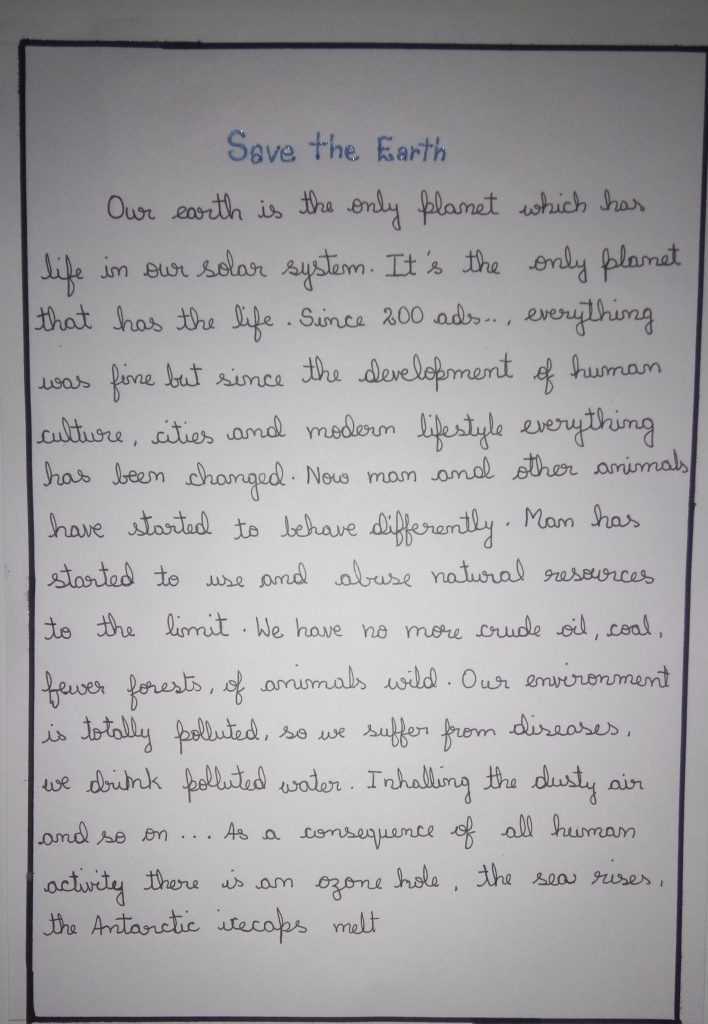 Save the Earth
Our earth is the only planet which has
life in our solar system. It's the only planet
that has the life. Since 200 ads.., everything
was fine but since the development of human
culture, cities and modern lifestyle everything
has been changed. Now man and other animals
have started to behave differently. Man has
started to use and abuse natural resources
to the limit. We have no more crude oil, coal,
fewer forests, of animals wild. Our environment
is totally polluted, so we suffer from diseases,
we drink polluted water. Inhalling the dusty air
and so on ... As a consequence of all human
activity there is an ozone hole, the sea rises,
the Antarctic icecaps melt